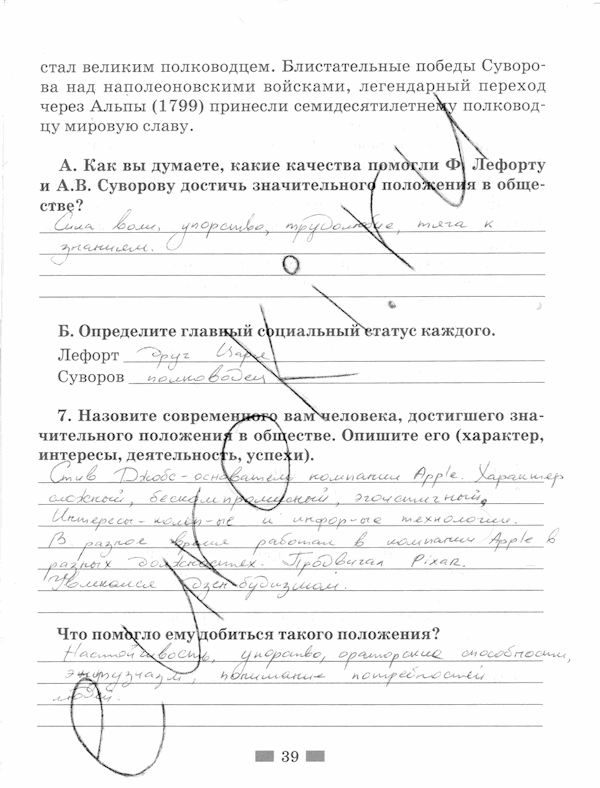 стал великим полководцем. Блистательные победы Суворо-
ва над наполеоновскими войсками, легендарный переход
через Альпы (1799) принесли семидесятилетнему полковод-
цу мировую славу.
А. Как вы думаете, какие качества помогли Ф. Лефорту
и А.В. Суворову достичь значительного положения в обще-
стве?
Сила воли, упорство, трудолюбие, тяга к
знаниям.
Б. Определите главный социальный статус каждого.
Лефорт друг Царя
Суворов полководец
7. Назовите современного вам человека, достигшего зна-
чительного положения в обществе. Опишите его (характер,
интересы, деятельность, успехи).
Стив Джобс - основатель компании Apple. Характер
сложный, бескомпромисный, эгоистичный.
Интересы - комп-ые и инфор-ые технологии.
В разное время работал в компании Apple в
разных должностях. Продвигал Pixar.
Увлекался дзен-будизмом.
Что помогло ему добиться такого положения?
Настойчивость, упорство, ораторские способности,
энтузиазм, понимание потребностей
людей.
39